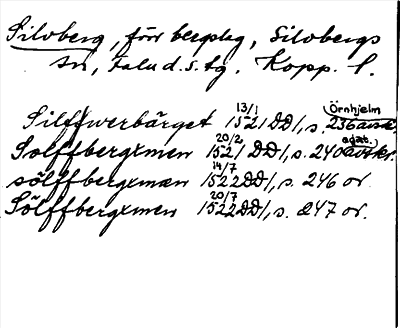 Silvberg, förr bergslag, Silvbergs
sn, Falu d.s. fg. Kopp. l.
Silffwerbärget 13/1 1521 DD1, s. 236 avskr. Örnhjelm
Solffbergxmen 20/2 1521 DD1, s. 240 avskr.
sölffbergxmæn 14/7 1522 DD1, s. 246 or.
Sölffbergxmen 20/7 1522 DD1, s. 247 or.